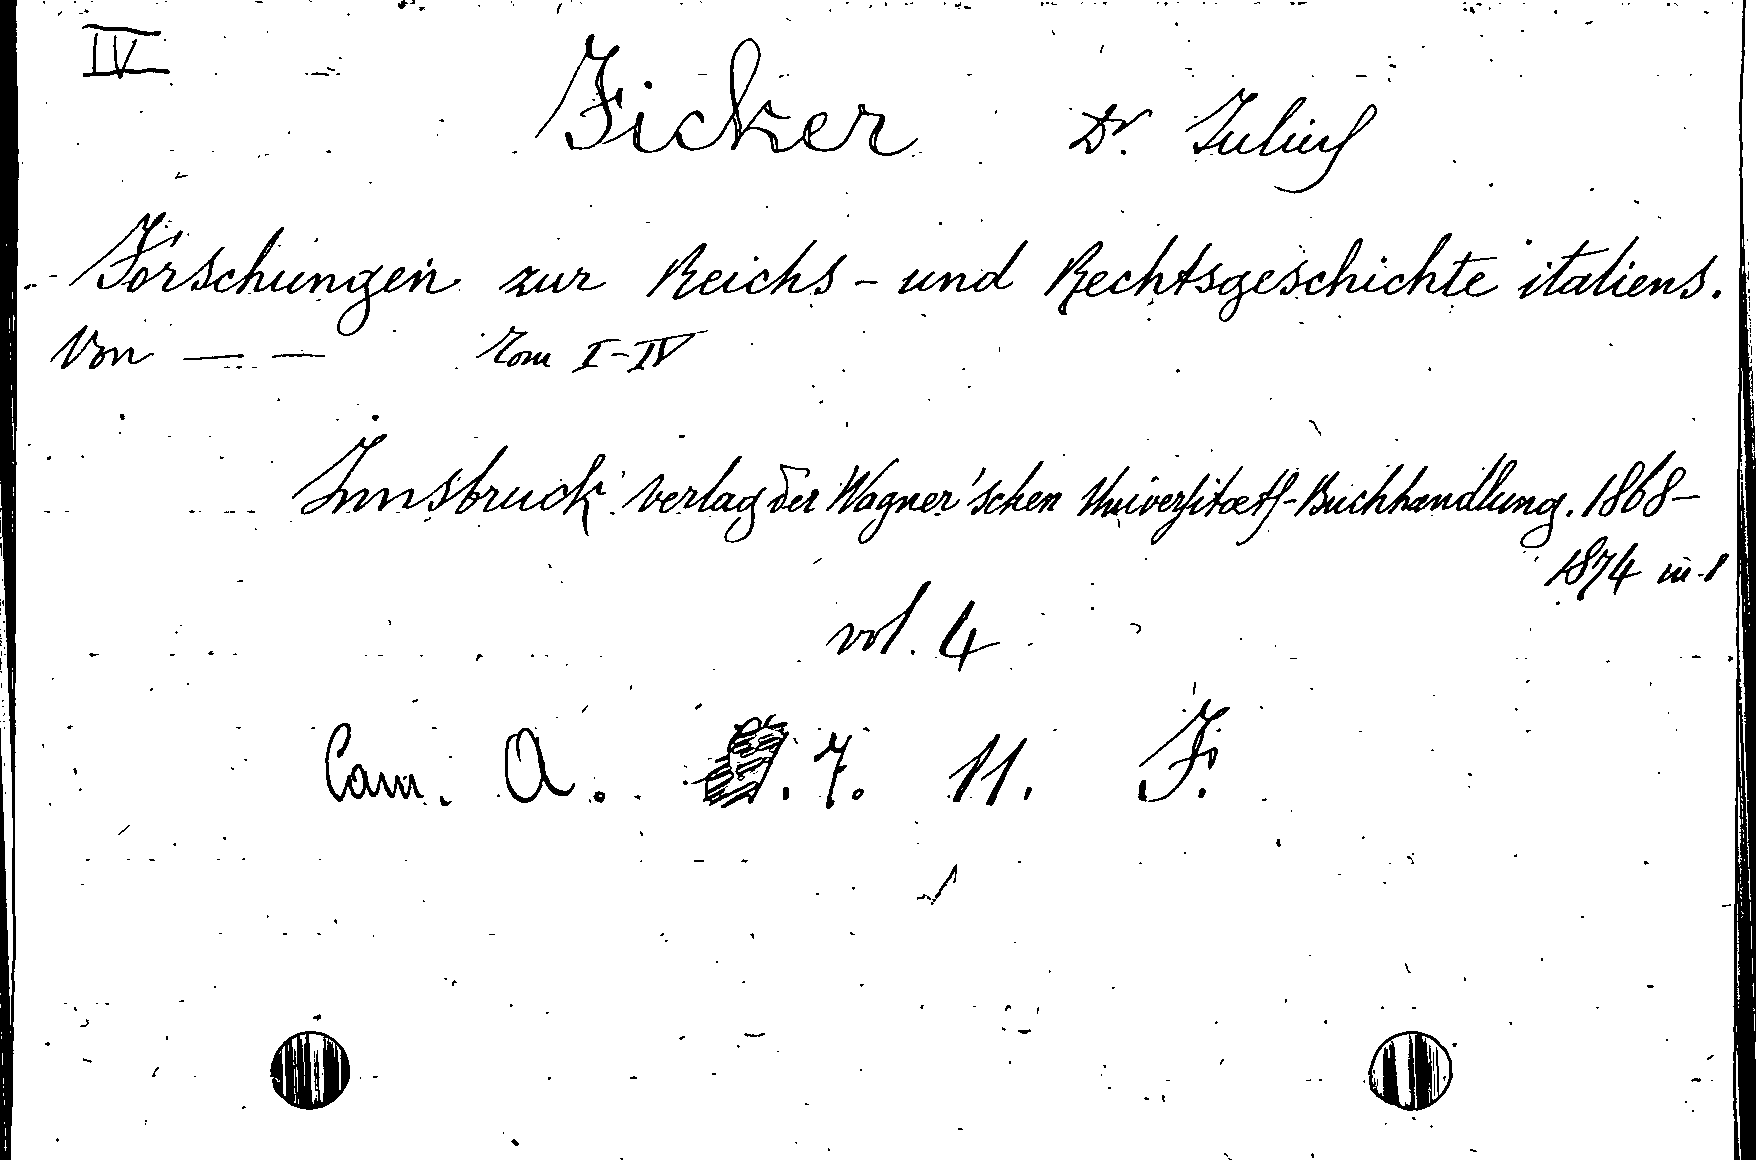 IV
Ficker Dr. Julius
Forschungen zur Reichs- und Rechtsgeschichte italiens.
Von — — Tom I-IV
Innsbruck Verlag der Wagner'schen Universitaets-Buchhandlung. 1868-
1874 in-8
vol. 4
Cam. A. . 7. 11. F.